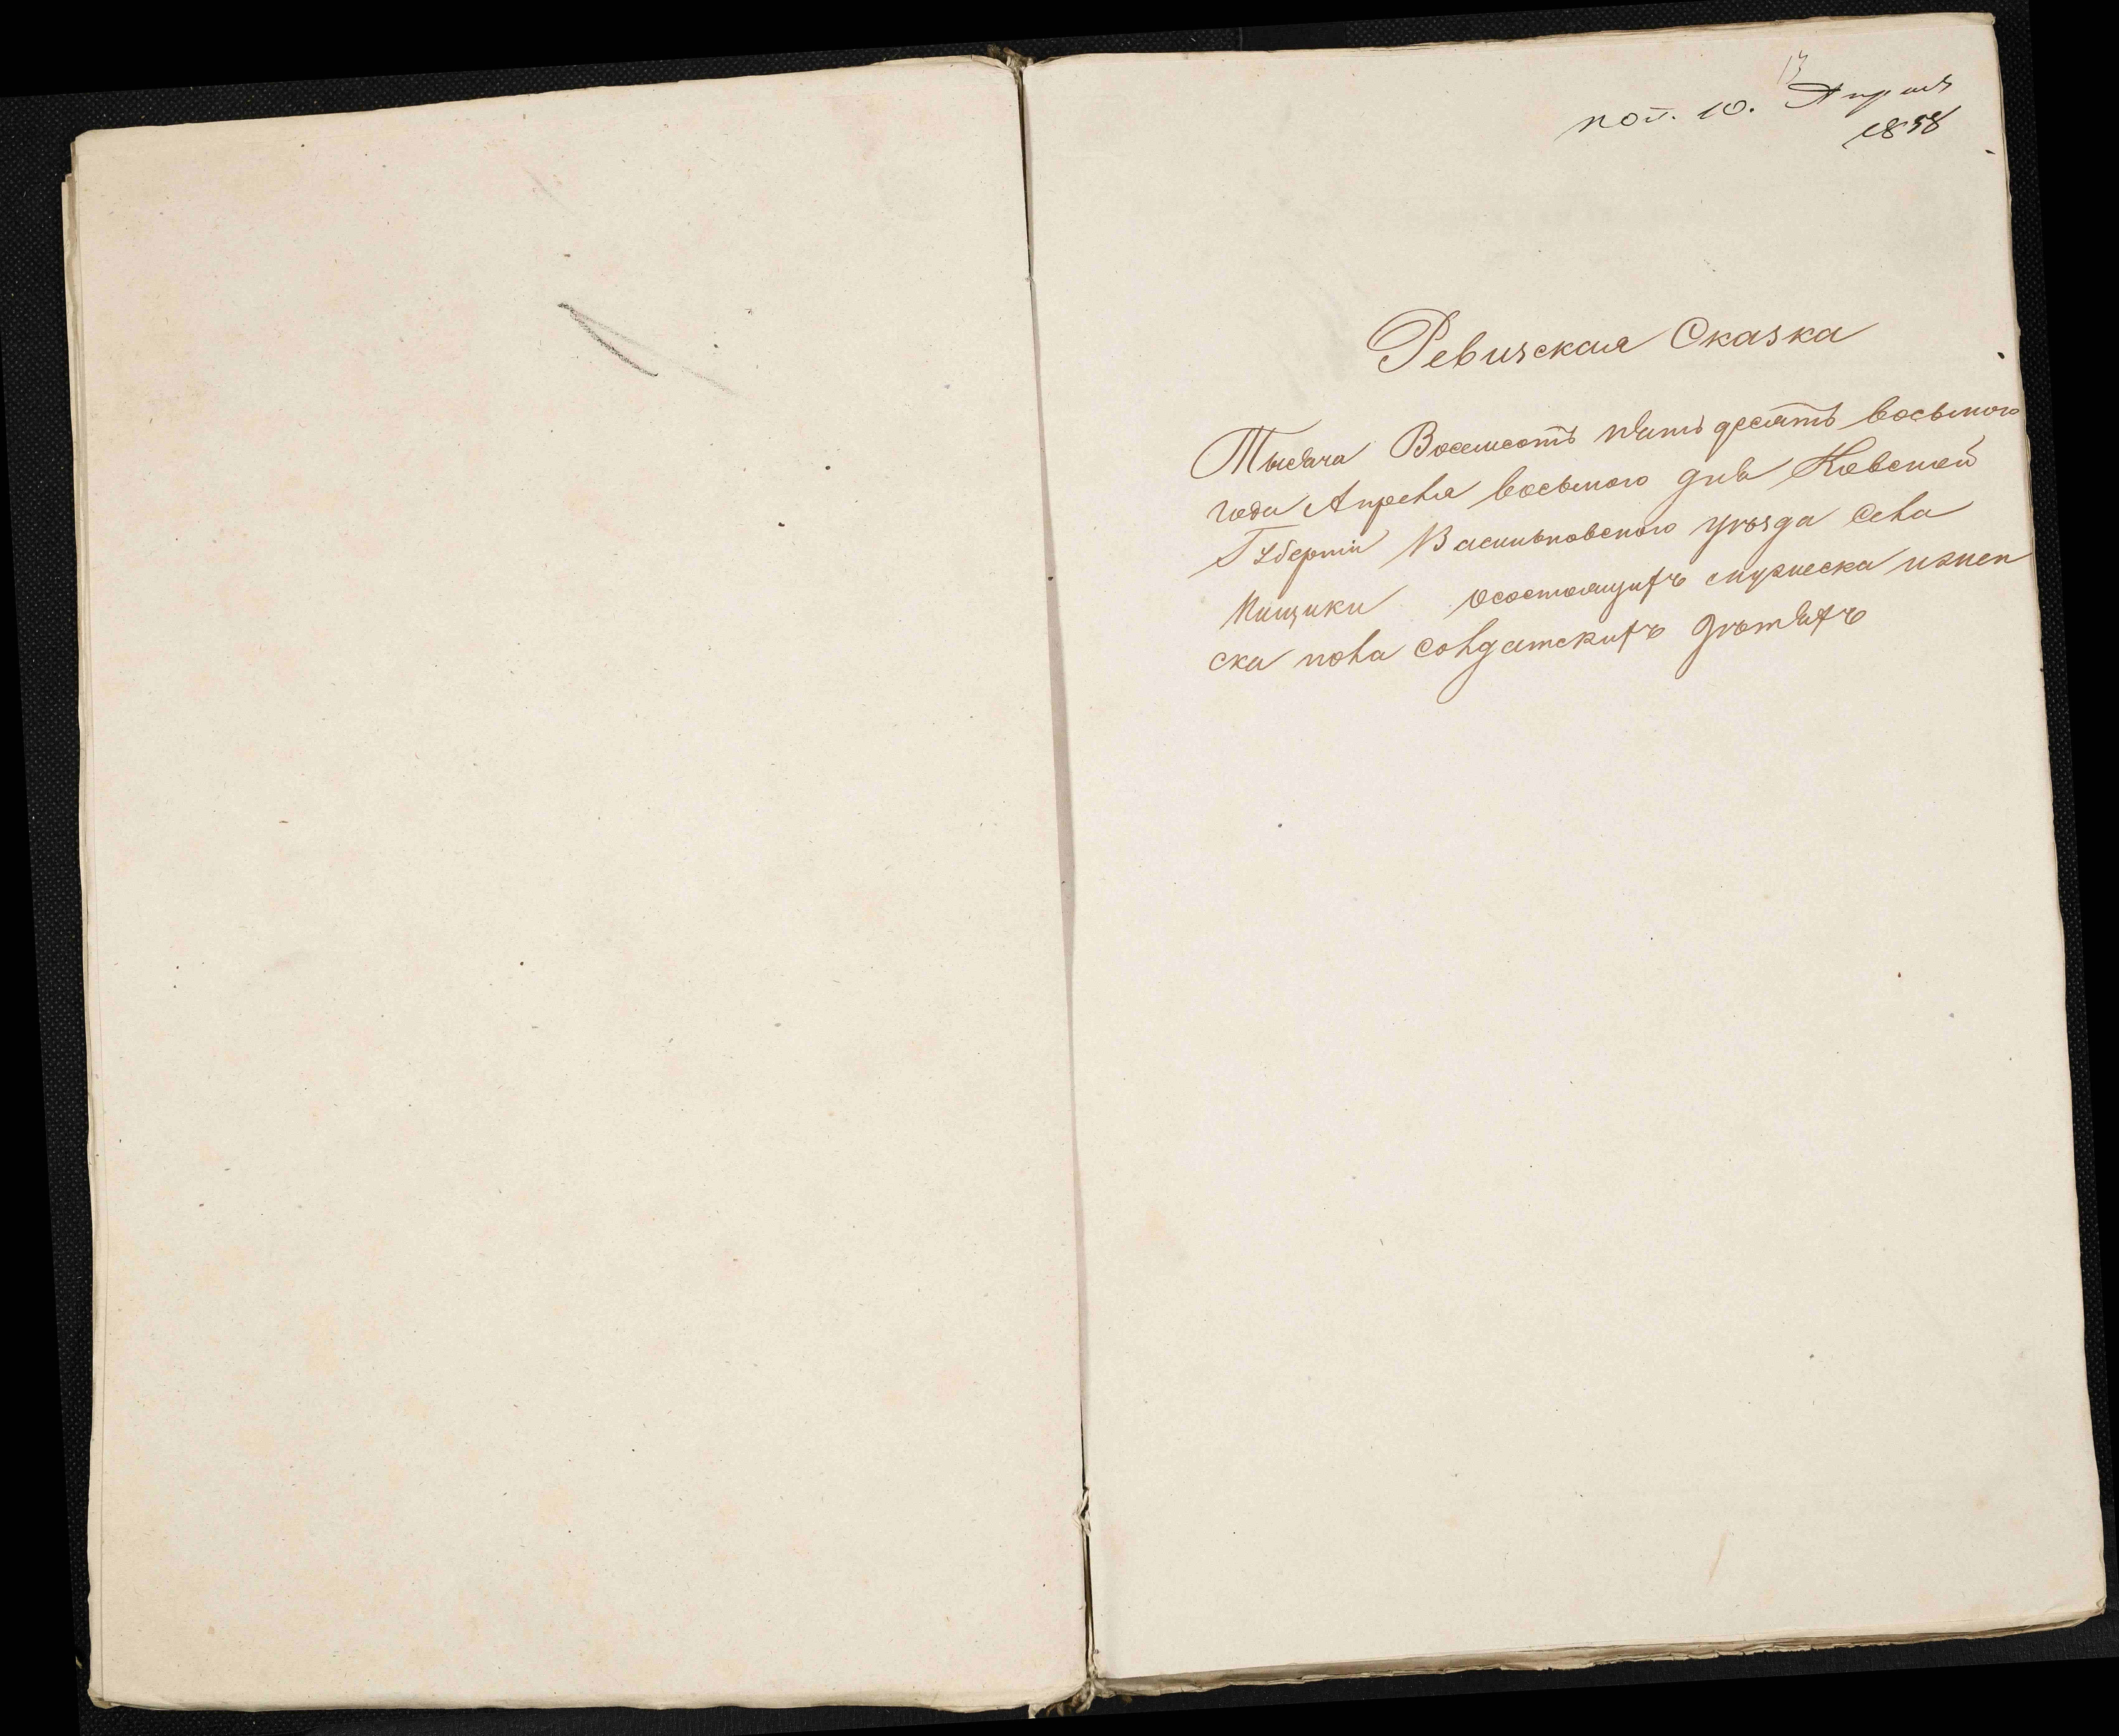 13
пол. 10. Апреля
1858
Ревизская Сказка
Тысяча Восемсотъ пятьдесятъ восьмого
года Апреля восьмого дня Киевской
Губернiи Васильковского уѣзда Села
Пищики осостоящихъ мужеска иженс
ска пола солдатскихъ дѣтяхъ